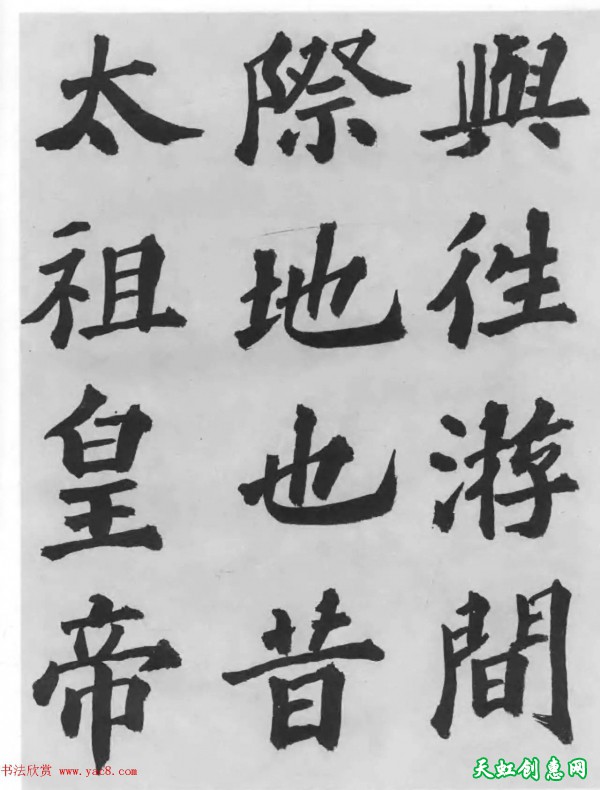 與徃游間
際地也昔
太祖皇帝
书法欣赏 www.yac8.com
天虹创惠网